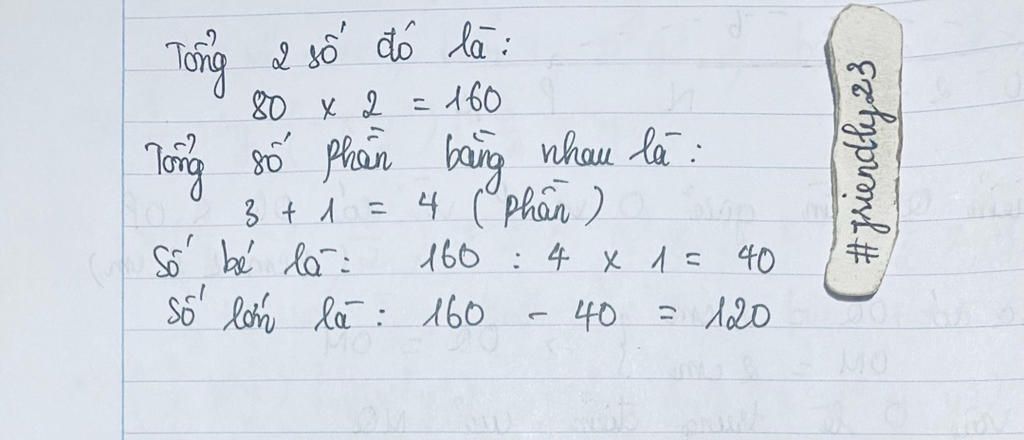 Tổng 2 số đó là:
80 x 2 = 160
Tổng số phần bằng nhau là:
3 + 1 = 4 (phần)
Số bé là: 160 : 4 x 1 = 40
Số lớn là: 160 - 40 = 120
#friendly23